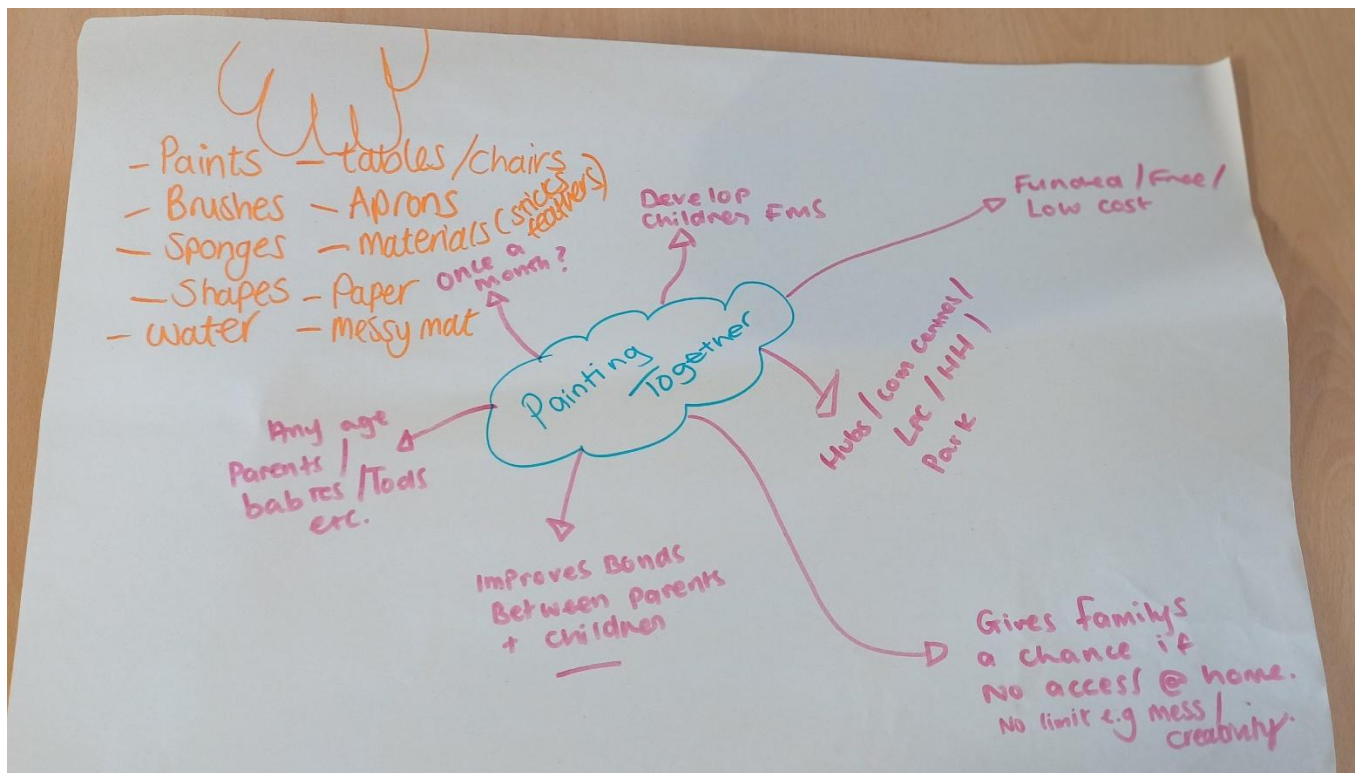 - Paints - tables/chairs
- Brushes - Aprons
- Sponges - materials (sticks
feathers)
- Shapes - Paper
- water - messy mat
Once a
month?
Develop
children FMS
Funded/Free/
Low cost
Painting
Together
Hubs/com centres/
LAC/HH/
Park
Any age
Parents/
babies/Tods
etc.
Improves Bonds
Between parents
+ children
Gives familys
a chance if
No access @ home.
No limit e.g mess/
creativity.